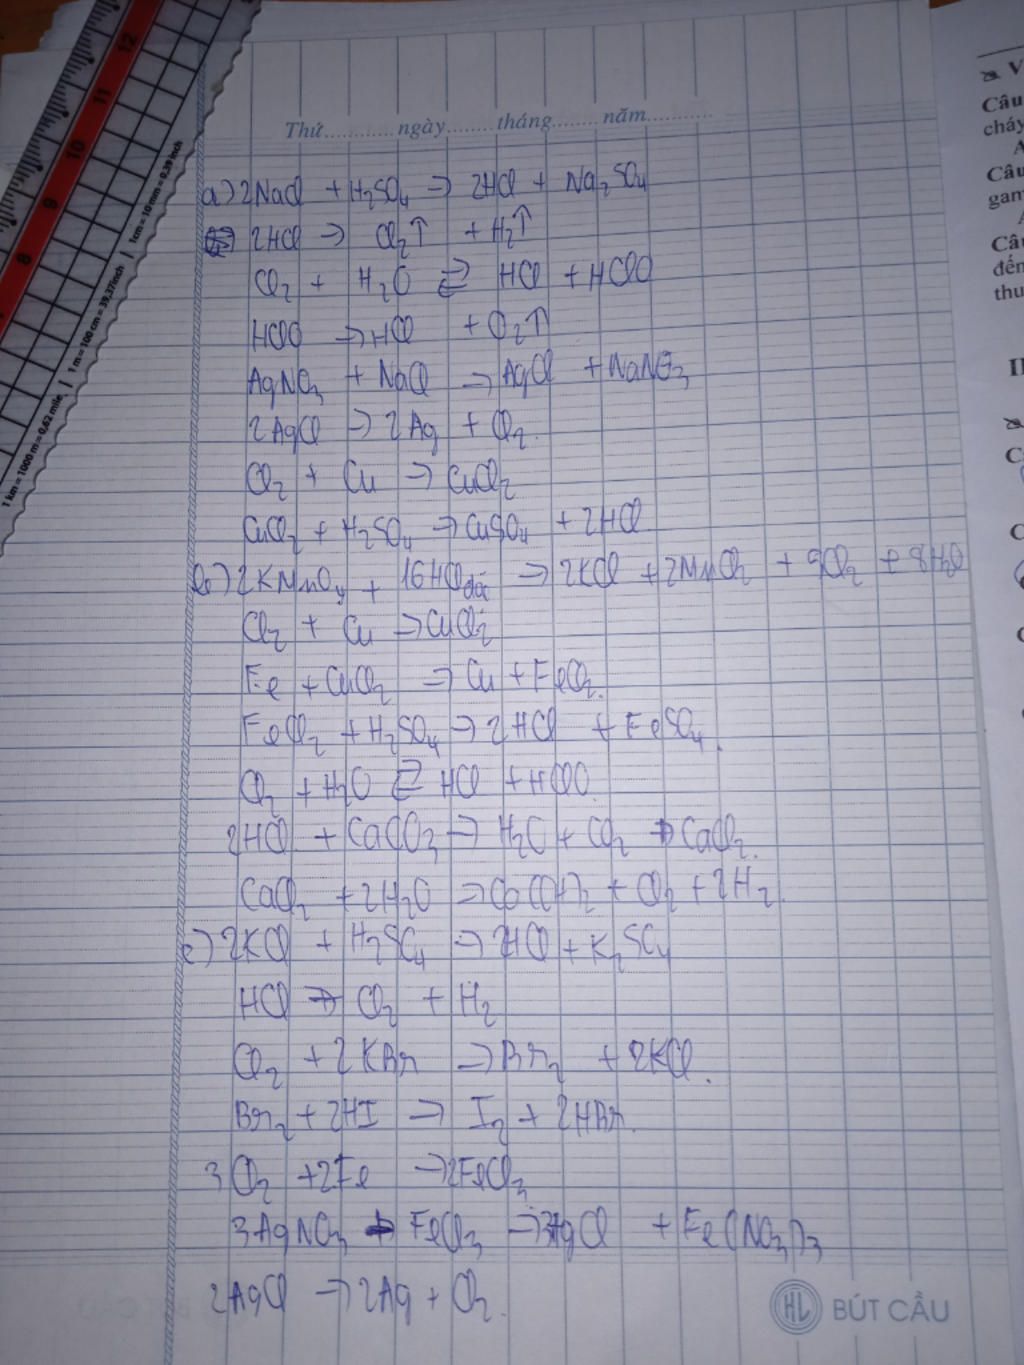 Thứ............ngày........tháng........năm............
a) 2NaCl + H₂SO₄ → 2HCl + Na₂SO₄
2HCl → Cl₂↑ + H₂↑
Cl₂ + H₂O ⇌ HCl + HClO
HClO → HCl + O₂↑
AgNO₃ + NaCl → AgCl + NaNO₃
2AgCl → 2Ag + Cl₂.
Cl₂ + Cu → CuCl₂
CuCl₂ + H₂SO₄ → CuSO₄ + 2HCl
b) 2KMnO₄ + 16HCl đặc → 2KCl + 2MnCl₂ + 5Cl₂ + 8H₂O
Cl₂ + Cu → CuCl₂
Fe + CuCl₂ → Cu + FeCl₂.
FeCl₂ + H₂SO₄ → 2HCl + FeSO₄.
Cl₂ + H₂O ⇌ HCl + HClO
2HCl + CaCO₃ → H₂O + CO₂ + CaCl₂.
CaCl₂ + 2H₂O → Ca(OH)₂ + Cl₂ + 2H₂.
c) 2KCl + H₂SO₄ → 2HCl + K₂SO₄
HCl → Cl₂ + H₂
Cl₂ + 2KBr → Br₂ + 2KCl.
Br₂ + 2HI → I₂ + 2HBr.
3Cl₂ + 2Fe → 2FeCl₃
3AgNO₃ + FeCl₃ → 3AgCl + Fe(NO₃)₃
2AgCl → 2Ag + Cl₂.
HL BÚT CẦU
12
11
10
9
8
1cm = 10 mm = 0,39 inch
1m = 100 cm = 39,37inch
1 km = 1000 m = 0,62 mile
V
Câu
cháy
A
Câu
gam
A
Câu
đến
thu